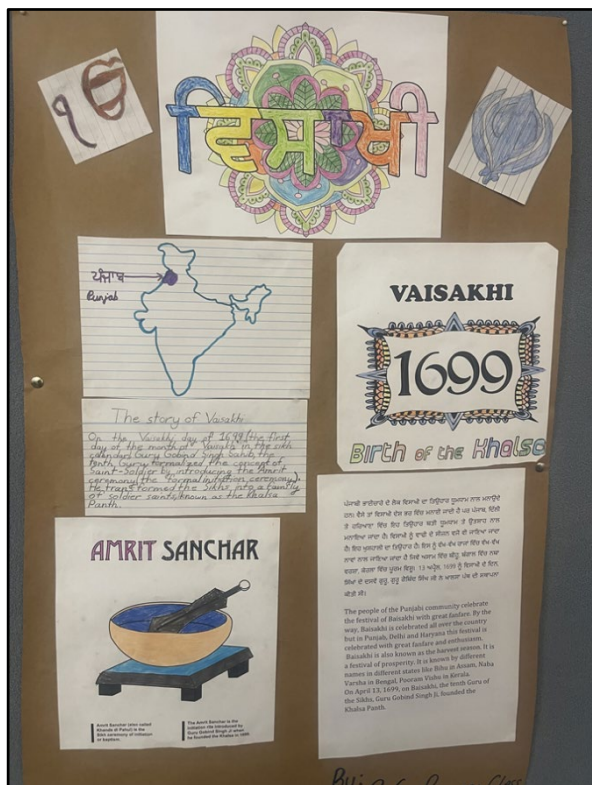 ੴ
ਵਿਸਾਖੀ
ਪੰਜਾਬ
Punjab
VAISAKHI
1699
Birth of the Khalsa
The story of Vaisakhi
On the Vaisakhi day of 1699 (the first
day of the month of Vaisakh in the sikh
calendar) Guru Gobind Singh Sahib, the
tenth Guru formalized the concept of
Saint-Soldier by introducing the Amrit
ceremony (the formal initiation ceremony).
He transformed the Sikhs into a family
of soldier saints, known as the Khalsa
Panth.
AMRIT SANCHAR
Amrit Sanchar (also called
Khanda di Pahul) is the
Sikh ceremony of initiation
or baptism.
The Amrit Sanchar is the
initiation rite introduced by
Guru Gobind Singh Ji when
he founded the Khalsa in 1699
ਪੰਜਾਬੀ ਭਾਈਚਾਰੇ ਦੇ ਲੋਕ ਵਿਸਾਖੀ ਦਾ ਤਿਉਹਾਰ ਧੂਮਧਾਮ ਨਾਲ ਮਨਾਉਂਦੇ
ਹਨ। ਵੈਸੇ ਤਾਂ ਵਿਸਾਖੀ ਦੇਸ਼ ਭਰ ਵਿੱਚ ਮਨਾਈ ਜਾਂਦੀ ਹੈ ਪਰ ਪੰਜਾਬ, ਦਿੱਲੀ
ਤੇ ਹਰਿਆਣਾ ਵਿੱਚ ਇਹ ਤਿਉਹਾਰ ਬੜੀ ਧੂਮਧਾਮ ਤੇ ਉਤਸ਼ਾਹ ਨਾਲ
ਮਨਾਇਆ ਜਾਂਦਾ ਹੈ। ਵਿਸਾਖੀ ਨੂੰ ਵਾਢੀ ਦੇ ਸੀਜ਼ਨ ਵਜੋਂ ਵੀ ਜਾਣਿਆ ਜਾਂਦਾ
ਹੈ। ਇਹ ਖੁਸ਼ਹਾਲੀ ਦਾ ਤਿਉਹਾਰ ਹੈ। ਇਸ ਨੂੰ ਵੱਖ-ਵੱਖ ਰਾਜਾਂ ਵਿੱਚ ਵੱਖ-ਵੱਖ
ਨਾਵਾਂ ਨਾਲ ਜਾਣਿਆ ਜਾਂਦਾ ਹੈ ਜਿਵੇਂ ਅਸਾਮ ਵਿੱਚ ਬੀਹੂ, ਬੰਗਾਲ ਵਿੱਚ ਨਬਾ
ਵਰਸ਼ਾ, ਕੇਰਲਾ ਵਿੱਚ ਪੂਰਮ ਵਿਸ਼ੂ। 13 ਅਪ੍ਰੈਲ, 1699 ਨੂੰ ਵਿਸਾਖੀ ਦੇ ਦਿਨ,
ਸਿੱਖਾਂ ਦੇ ਦਸਵੇਂ ਗੁਰੂ, ਗੁਰੂ ਗੋਬਿੰਦ ਸਿੰਘ ਜੀ ਨੇ ਖਾਲਸਾ ਪੰਥ ਦੀ ਸਥਾਪਨਾ
ਕੀਤੀ ਸੀ।
The people of the Punjabi community celebrate
the festival of Baisakhi with great fanfare. By the
way, Baisakhi is celebrated all over the country
but in Punjab, Delhi and Haryana this festival is
celebrated with great fanfare and enthusiasm.
Baisakhi is also known as the harvest season. It is
a festival of prosperity. It is known by different
names in different states like Bihu in Assam, Naba
Varsha in Bengal, Pooram Vishu in Kerala.
On April 13, 1699, on Baisakhi, the tenth Guru of
the Sikhs, Guru Gobind Singh Ji, founded the
Khalsa Panth.
By: